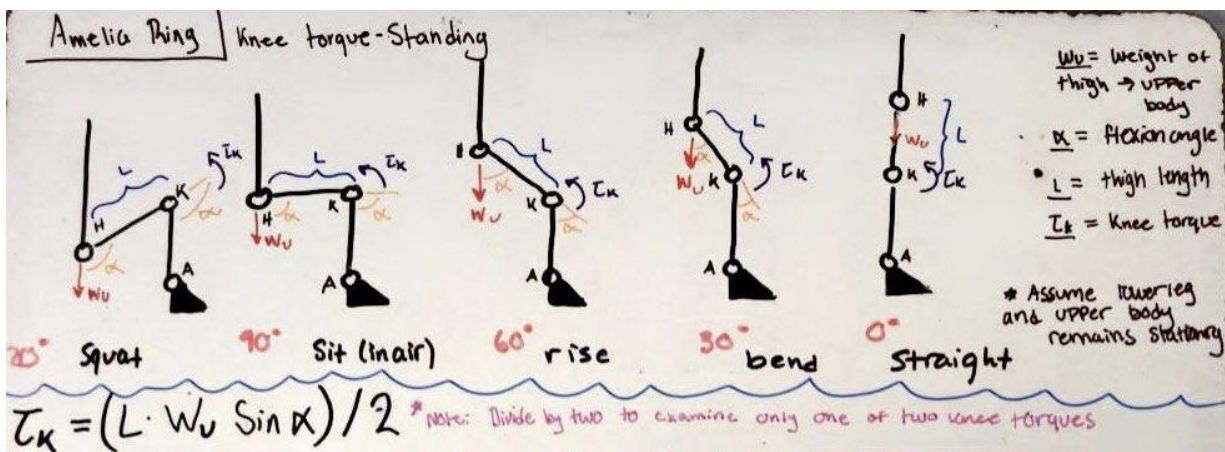 Amelia Ring
Knee torque-Standing
Wu = weight of
thigh → upper
body
α = flexion angle
L = thigh length
τK = Knee torque
* Assume lowerleg
and upper body
remains stationary
H
L
K
τK
α
α
A
Wu
L
τK
H
α
K
α
Wu
A
L
H
τK
α
K
α
Wu
A
H
L
α
Wu
K
τK
α
A
H
Wu
L
K
τK
A
20° Squat
90° Sit (in air)
60° rise
30° bend
0° Straight
τK = (L · Wu Sin α) / 2 *Note: Divide by two to examine only one of two knee torques